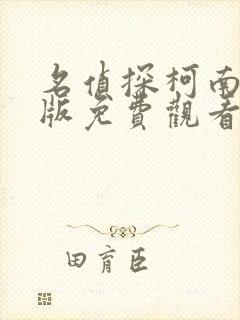 名偵探柯南
版免費觀看
田育臣